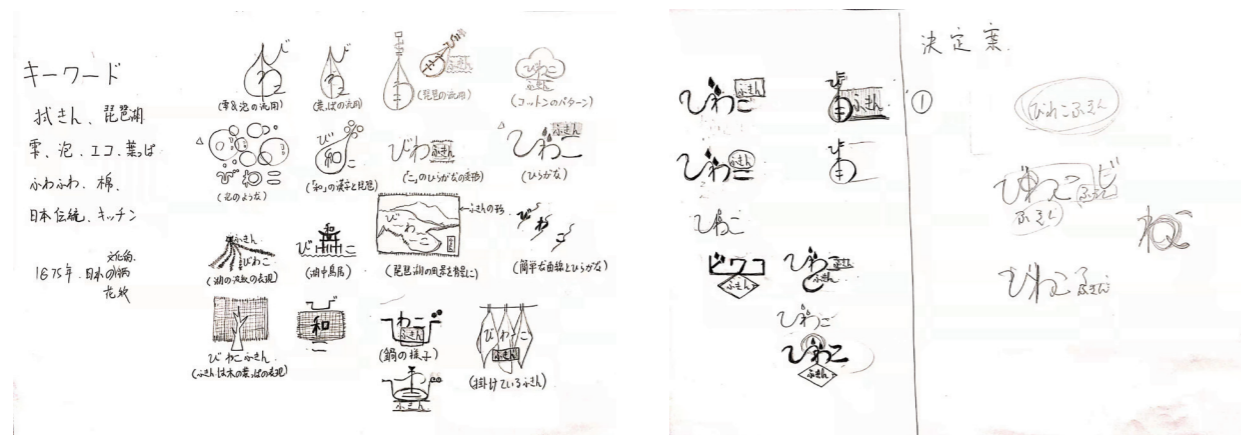 キーワード
拭きん、琵琶湖
雫、泡、エコ、葉っぱ
ふわふわ、棉、
日本伝統、キッチン
1875年、日本の
花紋
び
わ
(雫&泡の流用)
び
わ
(葉っぱの流用)
ふきん
(琵琶の流用)
びわこ
ふきん
(コットンのパターン)
(泡のような)
び
和
こ
(「和」の漢字と琵琶)
びわ
ふきん
(「こ」のひらがなの変形)
ふきん
びわこ
(ひらがな)
ふきん
びわこ
(湖の波紋の表現)
び こ
(湖中鳥居)
びわこ
←ふきんの形
(琵琶湖の風景を背景に)
びわこ
(簡単な曲線とひらがな)
びわこふきん
(ふきんは木の葉っぱの表現)
び
和
こ
わこ
ふきん
(鍋の様子)
ふきん
びわこ
ふきん
(掛けているふきん)
びわこ
ふきん
び
ふきん
びわこ
ふきん
び
びわこ
ビワコ
ふきん
びわこ
ふきん
びわこ
びわこ
ふきん
決定案
①
びわこふきん
びわこ
ふきん
ビ
ふきん
わこ
びわこふきん